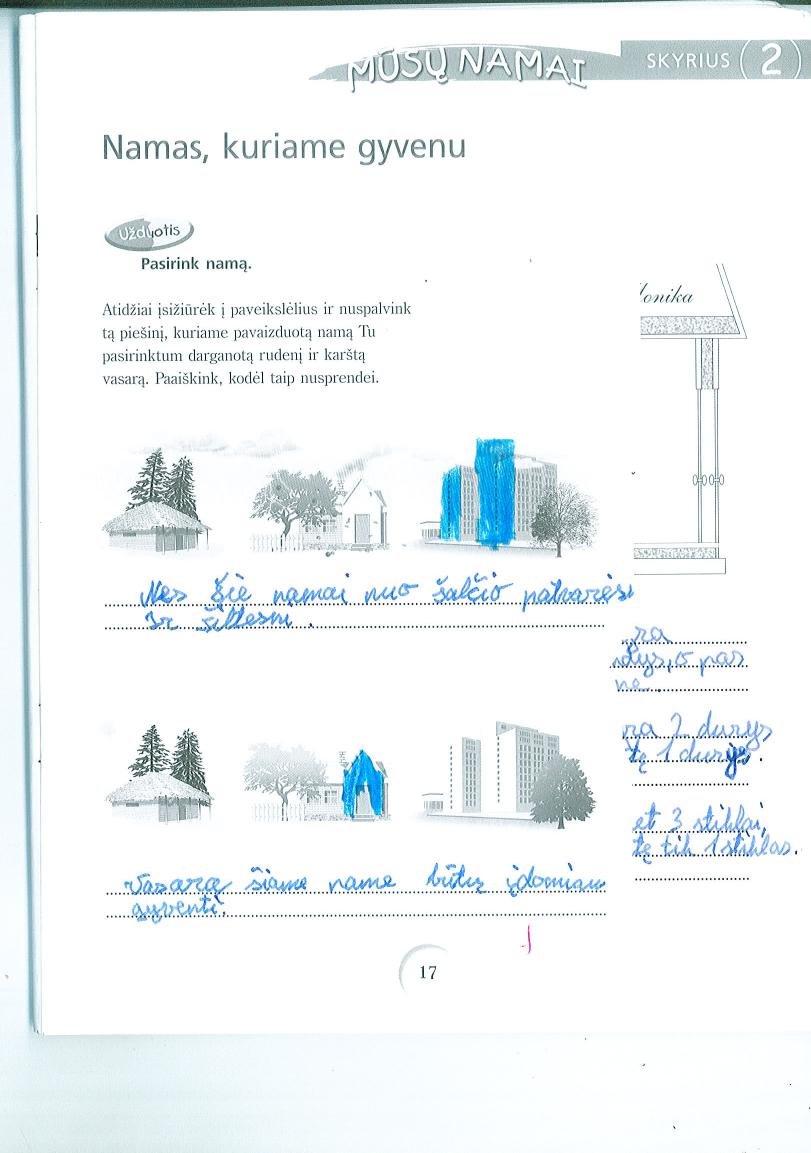 MŪSŲ NAMAI
SKYRIUS 2
Namas, kuriame gyvenu
Užduotis
Pasirink namą.
Atidžiai įsižiūrėk į paveikslėlius ir nuspalvink
tą piešinį, kuriame pavaizduotą namą Tu
pasirinktum darganotą rudenį ir karštą
vasarą. Paaiškink, kodėl taip nusprendei.
onika
Nes šie namai nuo šalčio patvaresi
Ir šiltesni.
ra
dys, o pas
ne.
ra 2 durys
tę 1 durys.
et 3 stiklai,
tę tik 1 stiklas.
Vasarą šiame name būtų įdomiau
gyventi.
17